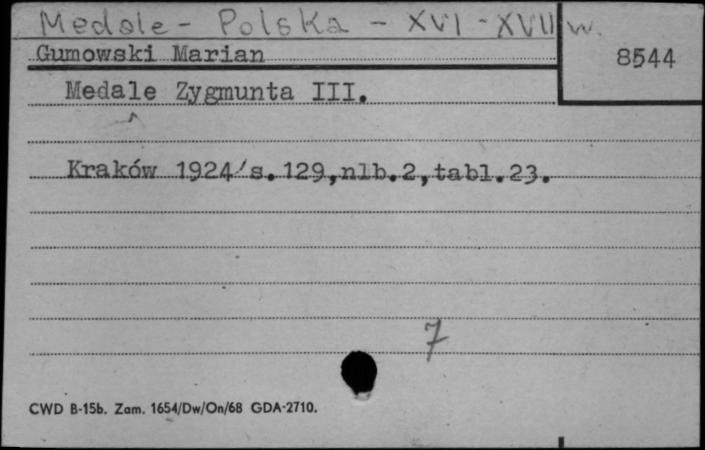 Medale - Polska - XVI - XVII w.
Gumowski Marian
8544
Medale Zygmunta III.
Kraków 1924/s.129,nlb.2,tabl.23.
7
CWD B-15b. Zam. 1654/Dw/On/68 GDA-2710.